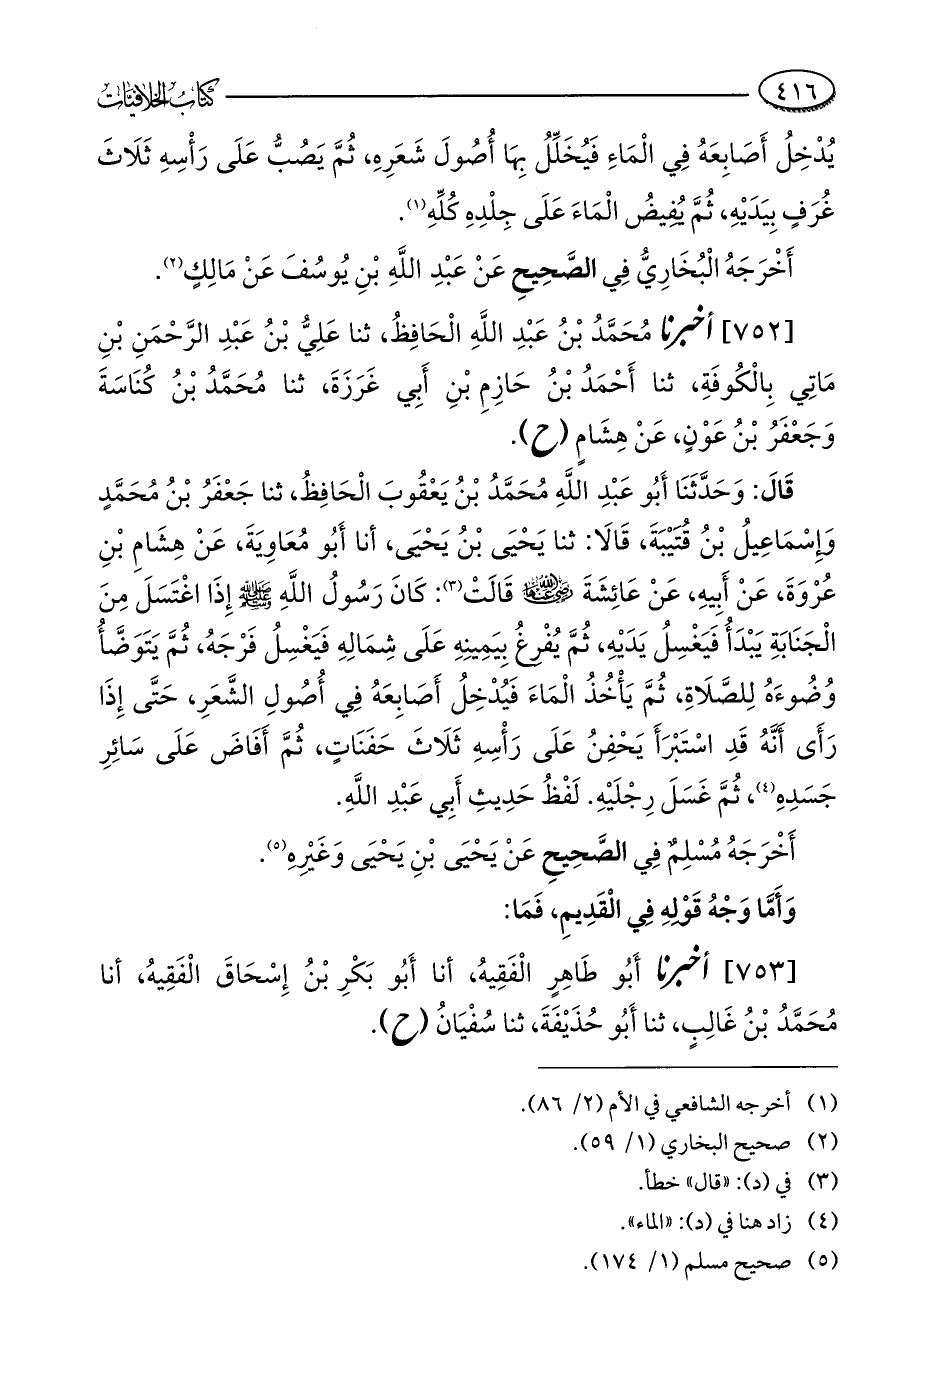 ٤١٦
كتاب الخلافيات
يُدْخِلُ أَصَابِعَهُ فِي الْمَاءِ فَيُخَلِّلُ بِهَا أُصُولَ شَعَرِهِ، ثُمَّ يَصُبُّ عَلَى رَأْسِهِ ثَلَاثَ
غُرَفٍ بِيَدَيْهِ، ثُمَّ يُفِيضُ الْمَاءَ عَلَى جِلْدِهِ كُلِّهِ(١).
أَخْرَجَهُ الْبُخَارِيُّ فِي الصَّحِيحِ عَنْ عَبْدِ اللَّهِ بْنِ يُوسُفَ عَنْ مَالِكٍ(٢).
[٧٥٢] أخبرنا مُحَمَّدُ بْنُ عَبْدِ اللَّهِ الْحَافِظُ، ثنا عَلِيُّ بْنُ عَبْدِ الرَّحْمَنِ بْنِ
مَاتِي بِالْكُوفَةِ، ثنا أَحْمَدُ بْنُ حَازِمِ بْنِ أَبِي غَرَزَةَ، ثنا مُحَمَّدُ بْنُ كُنَاسَةَ
وَجَعْفَرُ بْنُ عَوْنٍ، عَنْ هِشَامٍ (ح).
قَالَ: وَحَدَّثَنَا أَبُو عَبْدِ اللَّهِ مُحَمَّدُ بْنُ يَعْقُوبَ الْحَافِظُ، ثنا جَعْفَرُ بْنُ مُحَمَّدٍ
وَإِسْمَاعِيلُ بْنُ قُتَيْبَةَ، قَالَا: ثنا يَحْيَى بْنُ يَحْيَى، أنا أَبُو مُعَاوِيَةَ، عَنْ هِشَامِ بْنِ
عُرْوَةَ، عَنْ أَبِيهِ، عَنْ عَائِشَةَ رضي الله عنها قَالَتْ(٣): كَانَ رَسُولُ اللَّهِ ﷺ إِذَا اغْتَسَلَ مِنَ
الْجَنَابَةِ يَبْدَأُ فَيَغْسِلُ يَدَيْهِ، ثُمَّ يُفْرِغُ بِيَمِينِهِ عَلَى شِمَالِهِ فَيَغْسِلُ فَرْجَهُ، ثُمَّ يَتَوَضَّأُ
وُضُوءَهُ لِلصَّلَاةِ، ثُمَّ يَأْخُذُ الْمَاءَ فَيُدْخِلُ أَصَابِعَهُ فِي أُصُولِ الشَّعَرِ، حَتَّى إِذَا
رَأَى أَنَّهُ قَدِ اسْتَبْرَأَ يَحْفِنُ عَلَى رَأْسِهِ ثَلَاثَ حَفَنَاتٍ، ثُمَّ أَفَاضَ عَلَى سَائِرِ
جَسَدِهِ(٤)، ثُمَّ غَسَلَ رِجْلَيْهِ. لَفْظُ حَدِيثِ أَبِي عَبْدِ اللَّهِ.
أَخْرَجَهُ مُسْلِمٌ فِي الصَّحِيحِ عَنْ يَحْيَى بْنِ يَحْيَى وَغَيْرِهِ(٥).
وَأَمَّا وَجْهُ قَوْلِهِ فِي الْقَدِيمِ، فَمَا:
[٧٥٣] أخبرنا أَبُو طَاهِرٍ الْفَقِيهُ، أنا أَبُو بَكْرِ بْنُ إِسْحَاقَ الْفَقِيهُ، أنا
مُحَمَّدُ بْنُ غَالِبٍ، ثنا أَبُو حُذَيْفَةَ، ثنا سُفْيَانُ (ح).
(١) أخرجه الشافعي في الأم (٢/ ٨٦).
(٢) صحيح البخاري (١/ ٥٩).
(٣) في (د): «قال» خطأ.
(٤) زاد هنا في (د): «الماء».
(٥) صحيح مسلم (١/ ١٧٤).